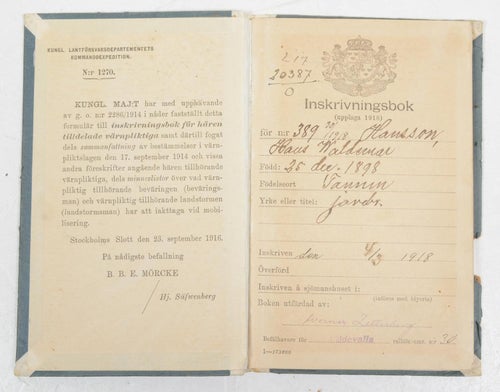 KUNGL. LANTFÖRSVARSDEPARTEMENTETS
KOMMANDOEXPEDITION.
N:r 1270.
KUNGL. MAJ:T har med upphävande
av g. o. nr 2286/1914 i nåder fastställt detta
formulär till inskrivningsbok för hären
tilldelade värnpliktiga samt därtill fogat
dels sammanfattning av bestämmelser i värn-
pliktslagen den 17. september 1914 och vissa
andra föreskrifter angående hären tillhörande
värnpliktiga, dels minneslistor över vad värn-
pliktig tillhörande beväringen (bevärings-
man) och värnpliktig tillhörande landstormen
(landstormsman) har att iakttaga vid mobi-
lisering.
Stockholms Slott den 23. september 1916.
På nådigste befallning
B. B. E. MÖRCKE
/
Hj. Säfwenberg
217
20387
0
Inskrivningsbok
(upplaga 1918)
för nr 389 30/1918 Hansson,
Hans Waldemar
Född: 25 dec. 1898
Födelseort Tanum
Yrke eller titel: jordbr.
Inskriven den 4/3 1918
Överförd
Inskriven å sjömanshuset i:
(införes med blyerts)
Boken utfärdad av:
Befälhavare för Uddevalla rullför.-omr. n:r 30.
1—173808